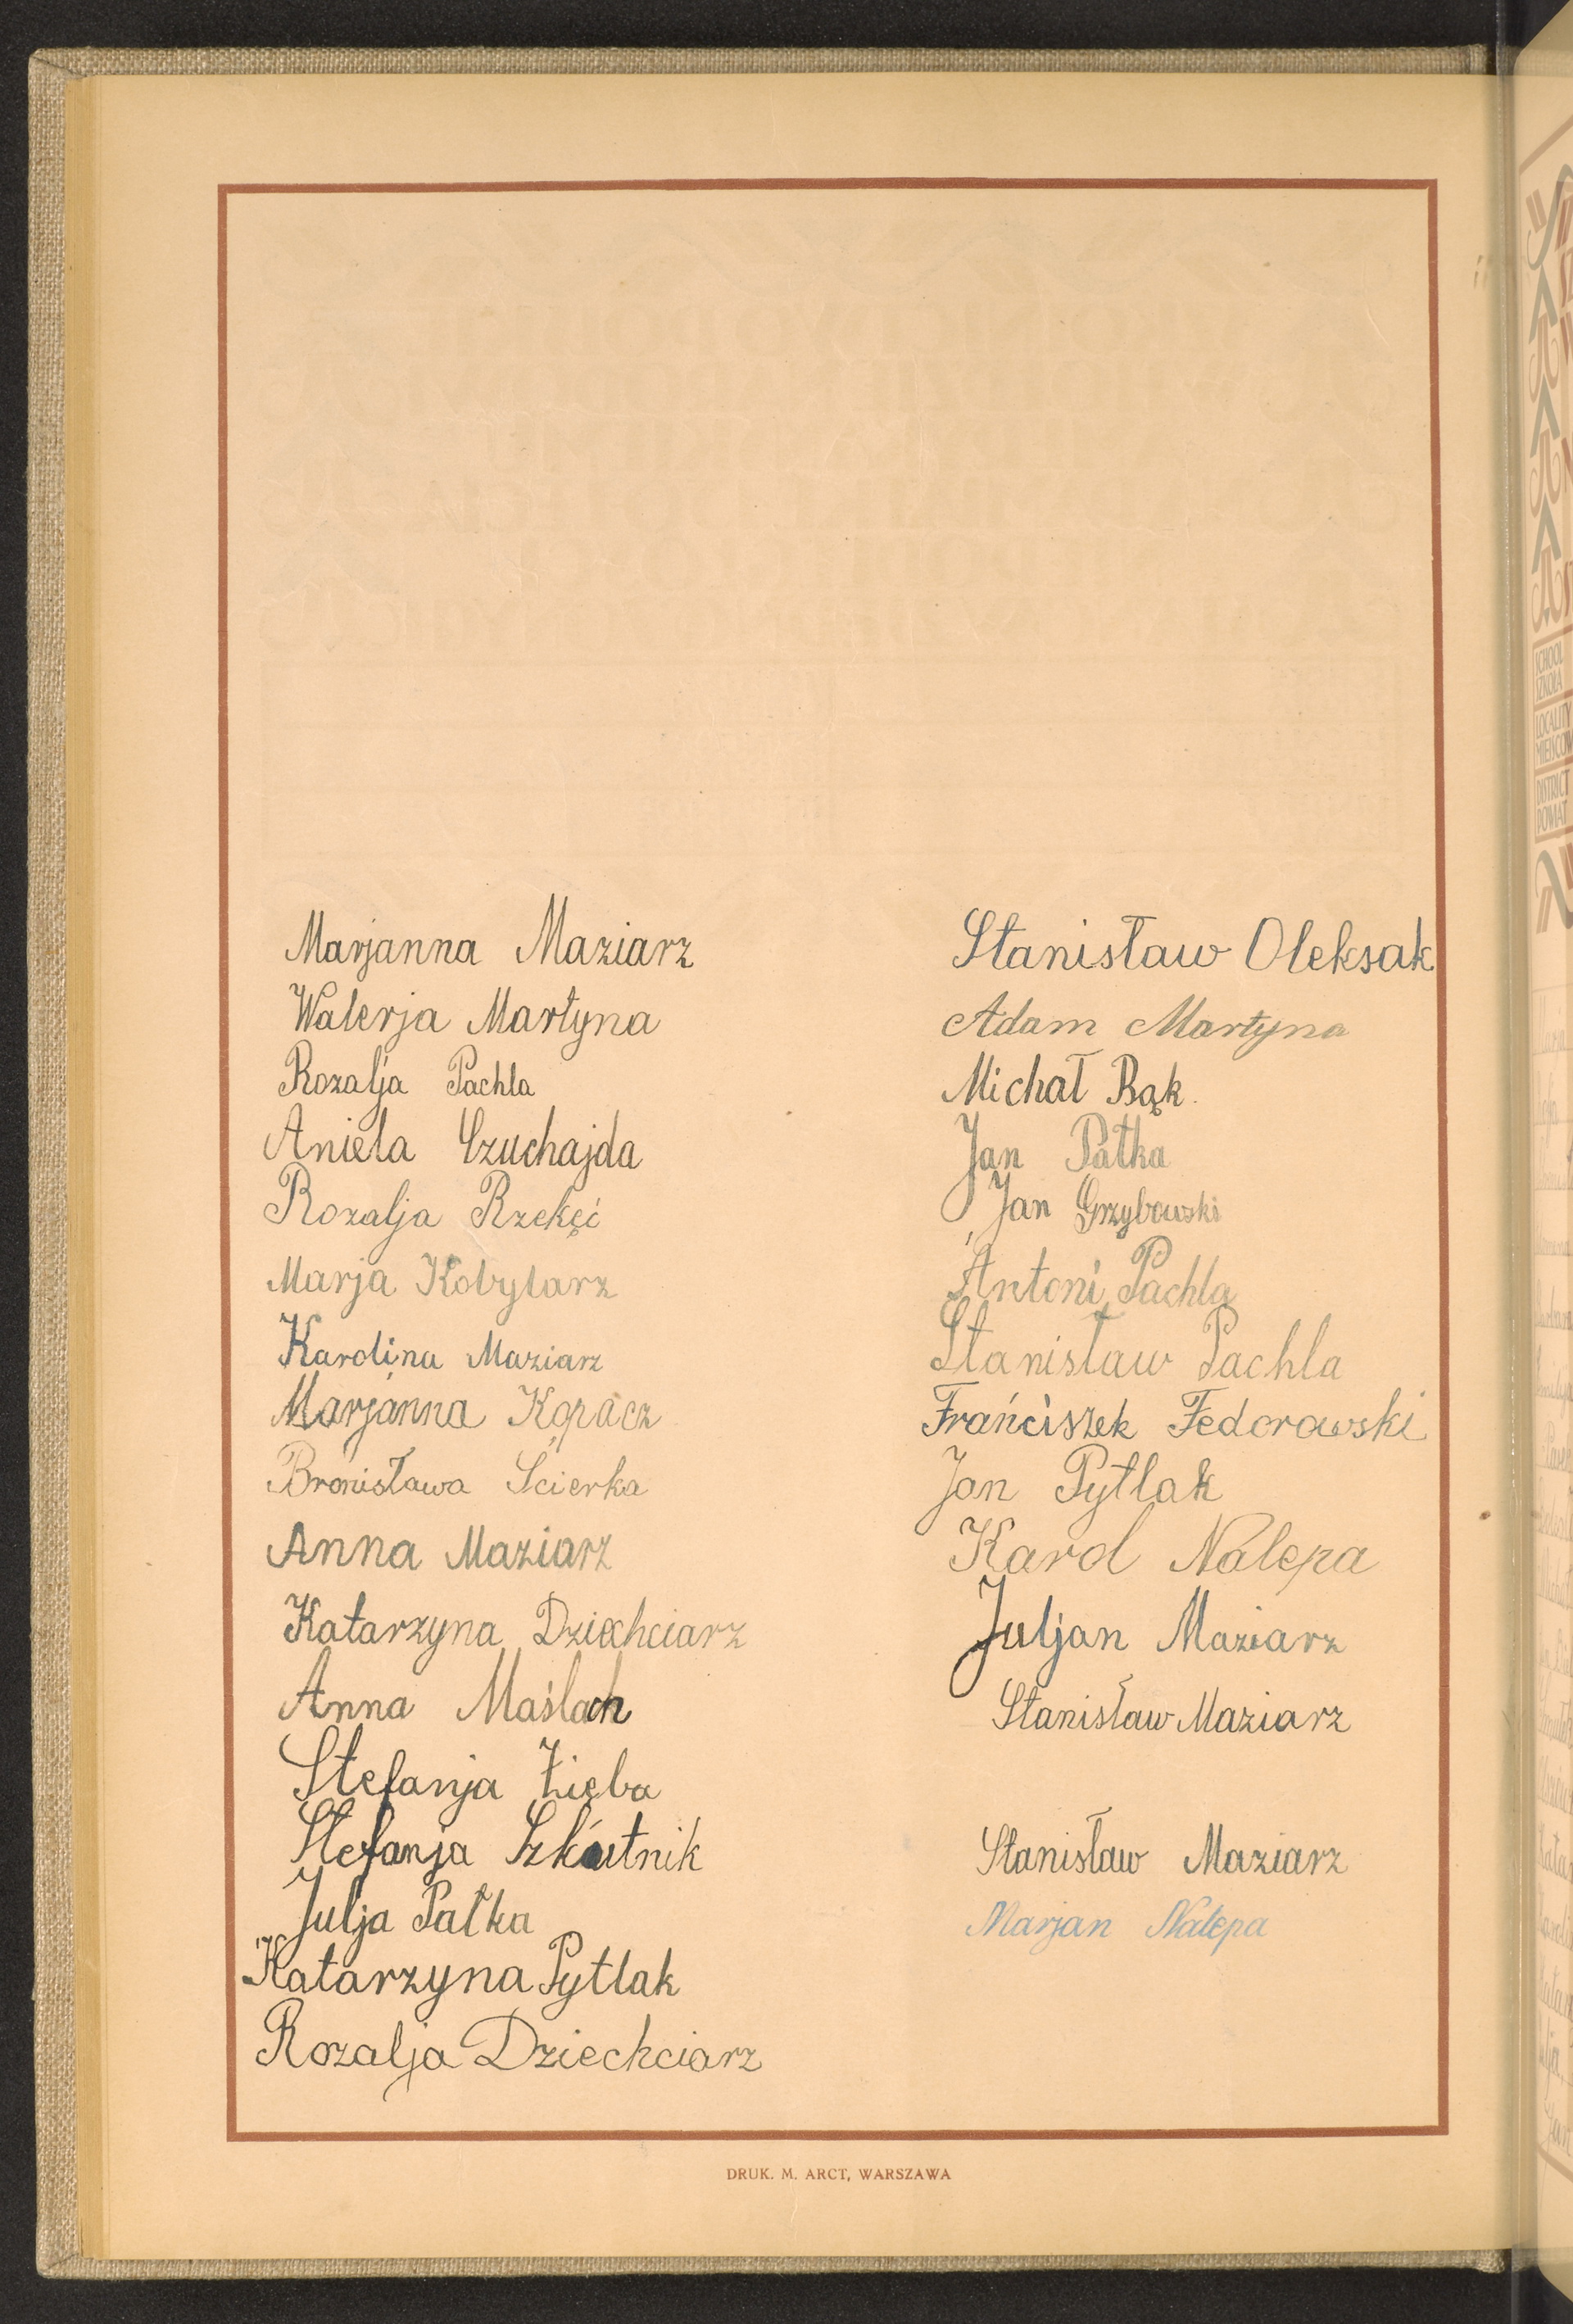 Marjanna Maziarz
Walerja Martyna
Rozalja Pachla
Aniela Czuchajda
Rozalja Rzekęć
Marja Kobylarz
Karolina Maziarz
Marjanna Kopacz
Bronisława Ścierka
Anna Maziarz
Katarzyna Dziechciarz
Anna Maślach
Stefanja Zięba
Stefanja Szkutnik
Julja Pałka
Katarzyna Pytlak
Rozalja Dziechciarz
Stanisław Oleksak
Adam Martyna
Michał Bąk.
Jan Pałka
Jan Grzybowski
Antoni Pachla
Stanisław Pachla
Franciszek Fedorowski
Jan Pytlak
Karol Nalepa
Juljan Maziarz
Stanisław Maziarz
Stanisław Maziarz
Marjan Nalepa
DRUK. M. ARCT, WARSZAWA
SCHOOL
SZKOŁA
LOCALITY
DISTRICT
POWIAT